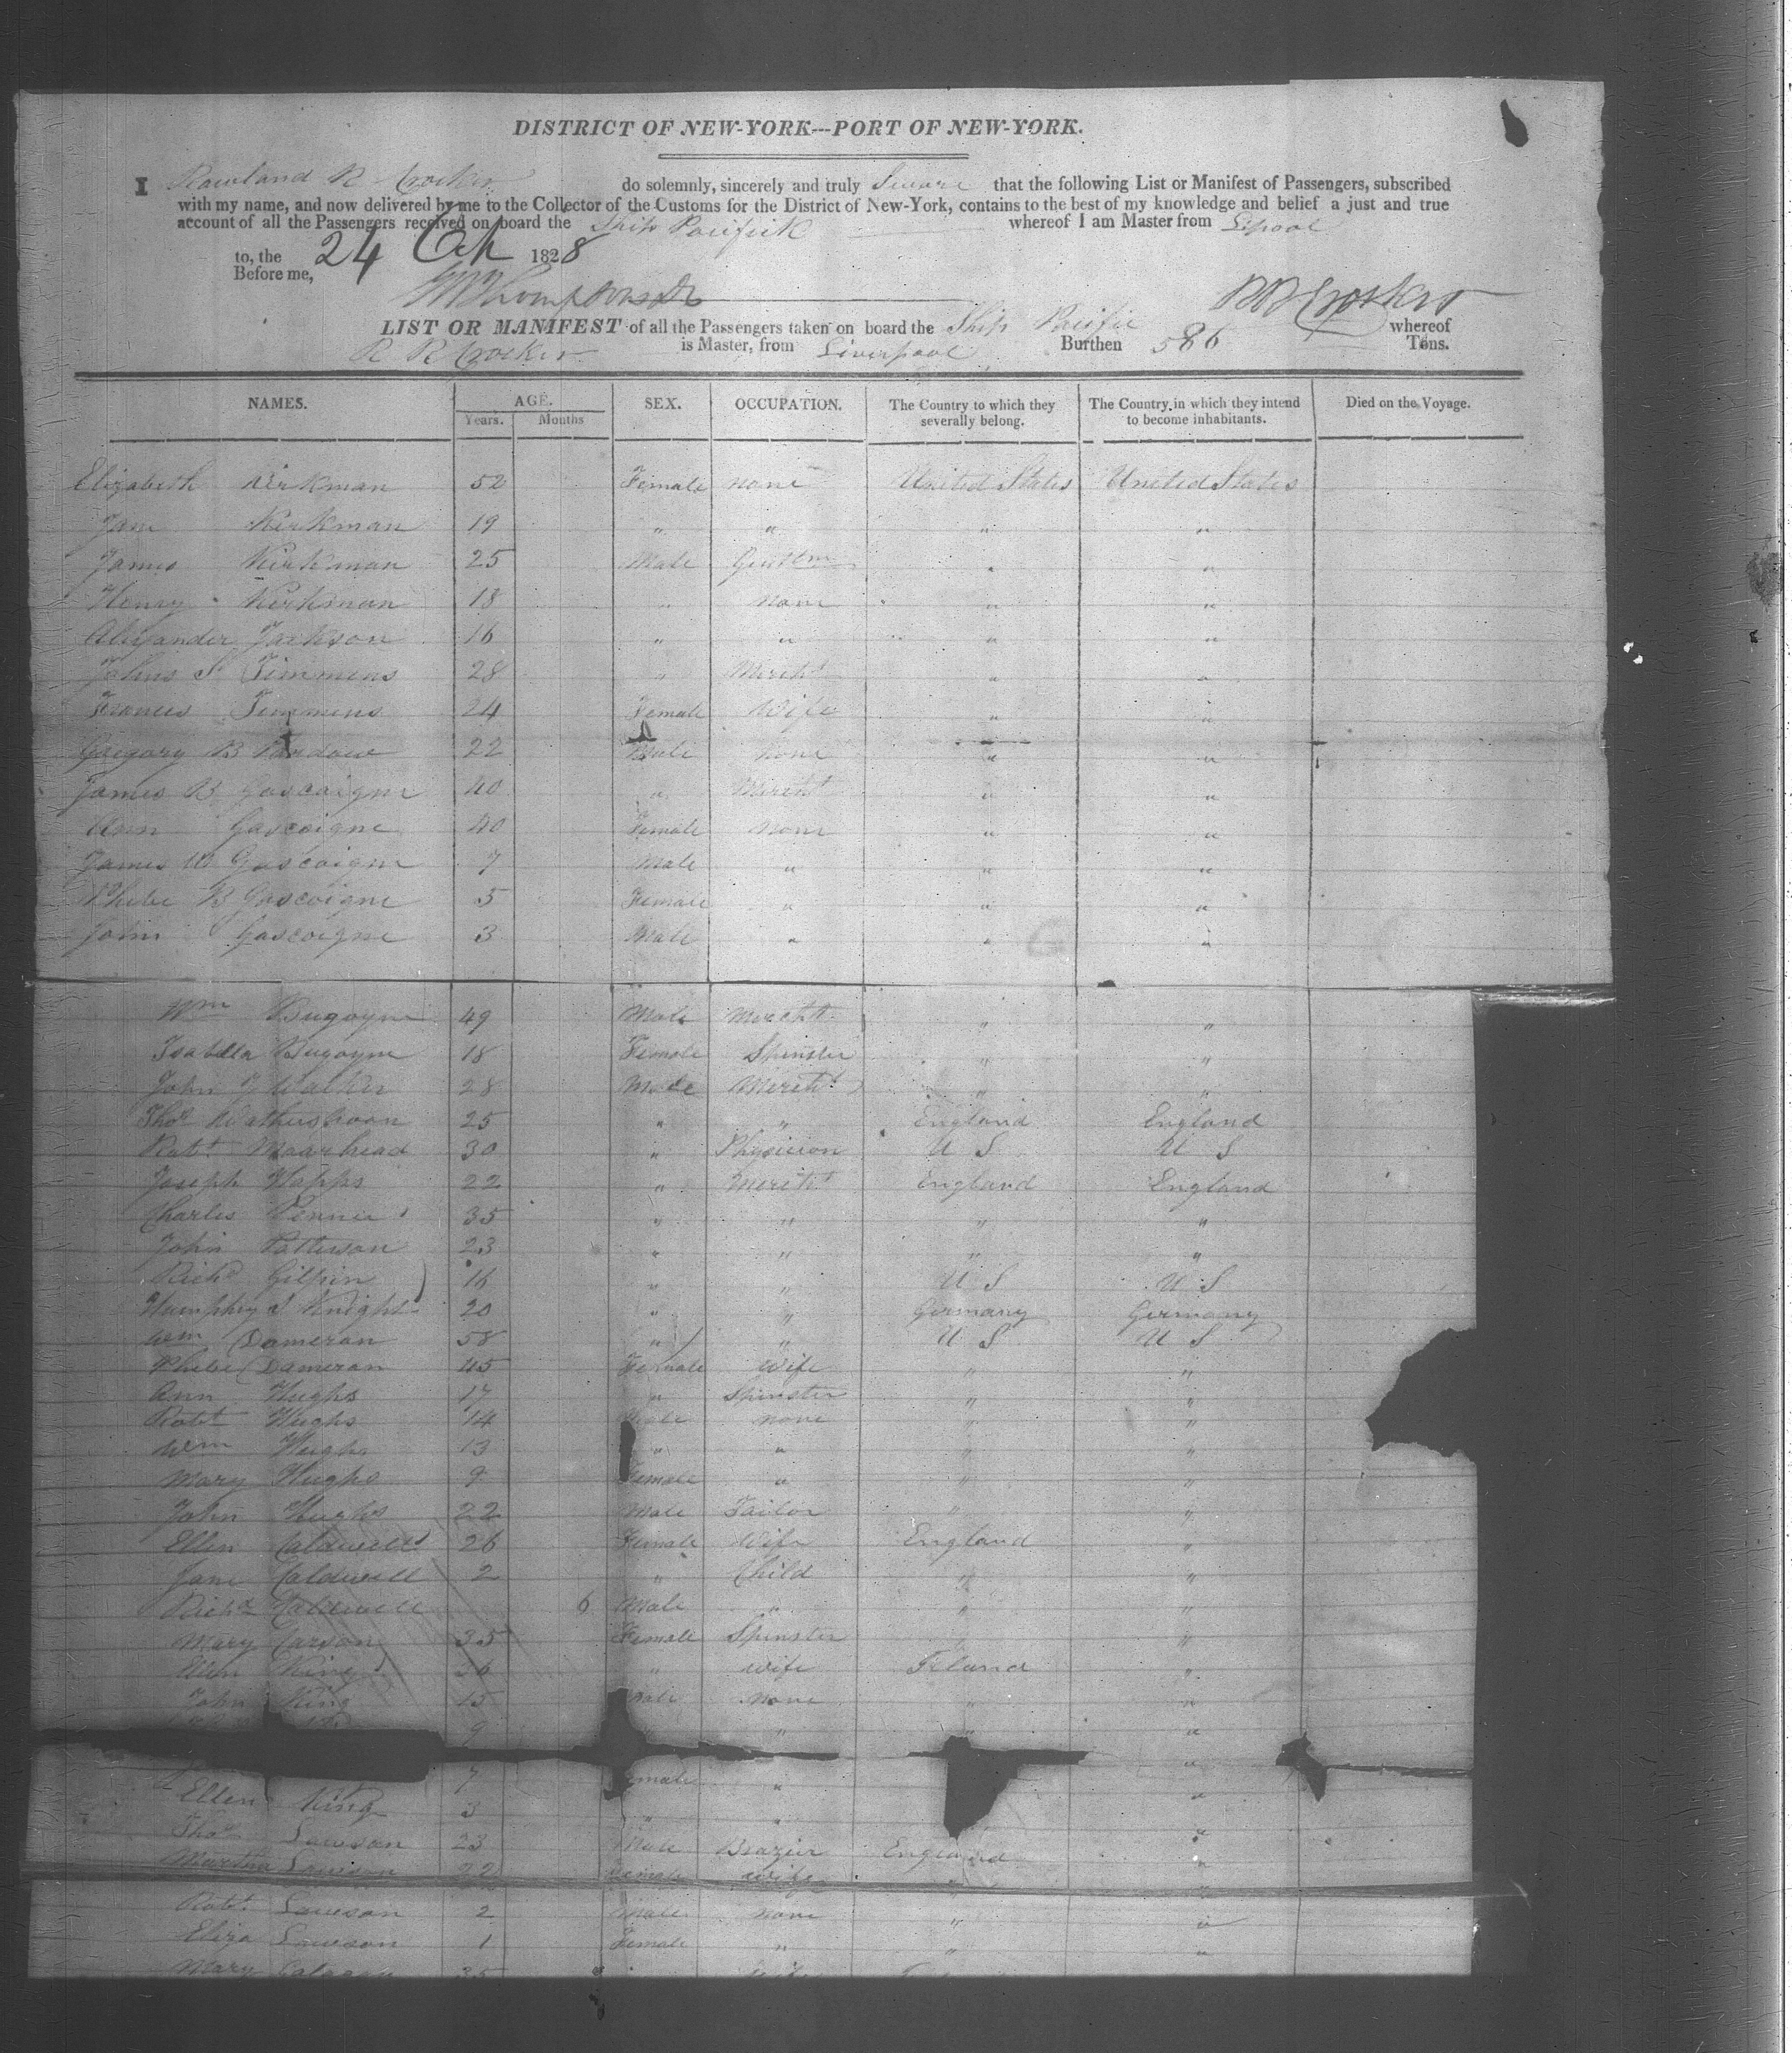 DISTRICT OF NEW-YORK---PORT OF NEW-YORK.
I Rowland R Crocker do solemnly, sincerely and truly Sware that the following List or Manifest of Passengers, subscribed
with my name, and now delivered by me to the Collector of the Customs for the District of New-York, contains to the best of my knowledge and belief a just and true
account of all the Passengers received on board the Ship Pacifick whereof I am Master from Lpool
to, the 24 Oct 1828
Before me,
R R Crocker
LIST OR MANIFEST of all the Passengers taken on board the Ship Pacific whereof
R R Crocker is Master, from Liverpool Burthen 586 Tons.
NAMES. AGE. SEX. OCCUPATION. The Country to which they severally belong. The Country in which they intend to become inhabitants. Died on the Voyage.
Years. Months
Elizabeth Kirkman 52 Female none United States United States
Jane Kirkman 19 " " " "
James Kirkman 25 Male Gentlmn " "
Henry Kirkman 18 " none " "
Alexander Jackson 16 " " " "
Johns S Timmins 28 " Mercht " "
Frances Timmins 24 Female Wife " "
Gregory B 22 Male none " "
James B Gascoigne 40 " Mercht " "
Ann Gascoigne 40 Female none " "
James W Gascoigne 7 Male " " "
Phebe B Gascoigne 5 Female " " "
John Gascoigne 3 Male " " "
Wm Bugoyne 49 Male Mercht " "
Isabella Bugoyne 18 Female Spinster " "
John J Walker 28 Male Mercht " "
Thos 25 " " England England
Robt Moorhead 30 " Physician U S U S
Joseph Happs 22 " Mercht England England
Charles 35 " " " "
John Patterson 23 " " " "
Richd Gilpin 16 " " U S U S
Humphry S Knight 20 " " Germany Germany
Wm Dameran 58 " " U S U S
Phebe Dameran 45 Female Wife " "
Ann Hughs 17 " Spinster " "
Robt Hughs 14 Male none " "
Wm Hughs 13 " " " "
Mary Hughs 9 Female " " "
John Hughs 22 Male Tailor " "
Ellen Caldwell 26 Female Wife England "
Jane Caldwell 2 " Child " "
Richd Caldwell 6 Male " " "
Mary Carson 35 Female Spinster " "
Ellen King 36 " Wife Ireland "
John King 15 Male none " "
9 " " " "
7 Female " "
Ellen King 3 " " "
Thos Lawson 23 Male Brazier England "
Martha Lawson 22 Female Wife " "
Robt Lawson 2 Male none " "
Eliza Lawson 1 Female " " "
Mary 35